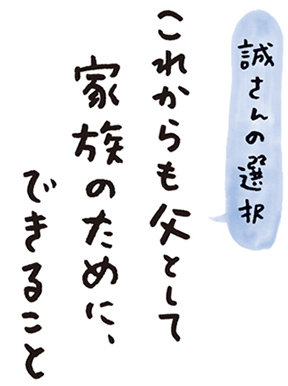 誠さんの選択
これからも父として
家族のために、
できること